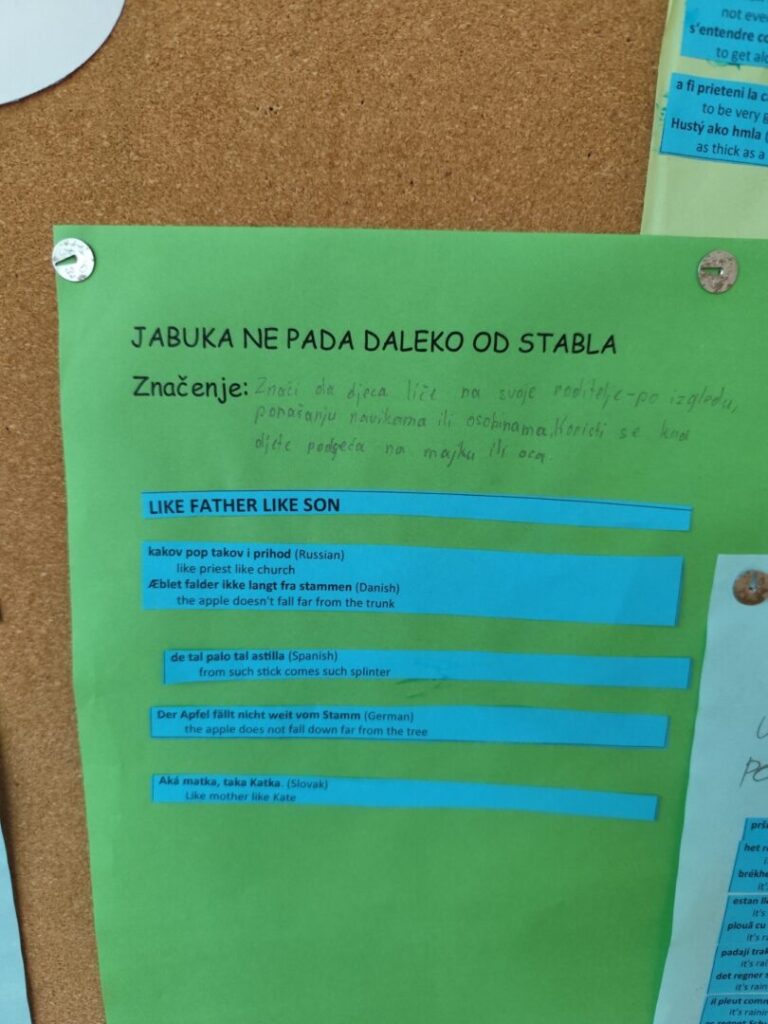 not eve
s'entendre co
to get alo
a fi prieteni la c
to be very g
Hustý ako hmla (
as thick as a
JABUKA NE PADA DALEKO OD STABLA
Značenje: Znači da djeca liče na svoje roditelje-po izgledu,
ponašanju navikama ili osobinama. Koristi se kad
dijete podsjeća na majku ili oca
LIKE FATHER LIKE SON
kakov pop takov i prihod (Russian)
like priest like church
Æblet falder ikke langt fra stammen (Danish)
the apple doesn't fall far from the trunk
de tal palo tal astilla (Spanish)
from such stick comes such splinter
Der Apfel fällt nicht weit vom Stamm (German)
the apple does not fall down far from the tree
Aká matka, taka Katka. (Slovak)
Like mother like Kate
prš
het re
i
brékhe
it'
estan llo
it's
plouă cu
it's ra
padají trak
it's rai
det regner s
it's rain
il pleut comm
it's rainin